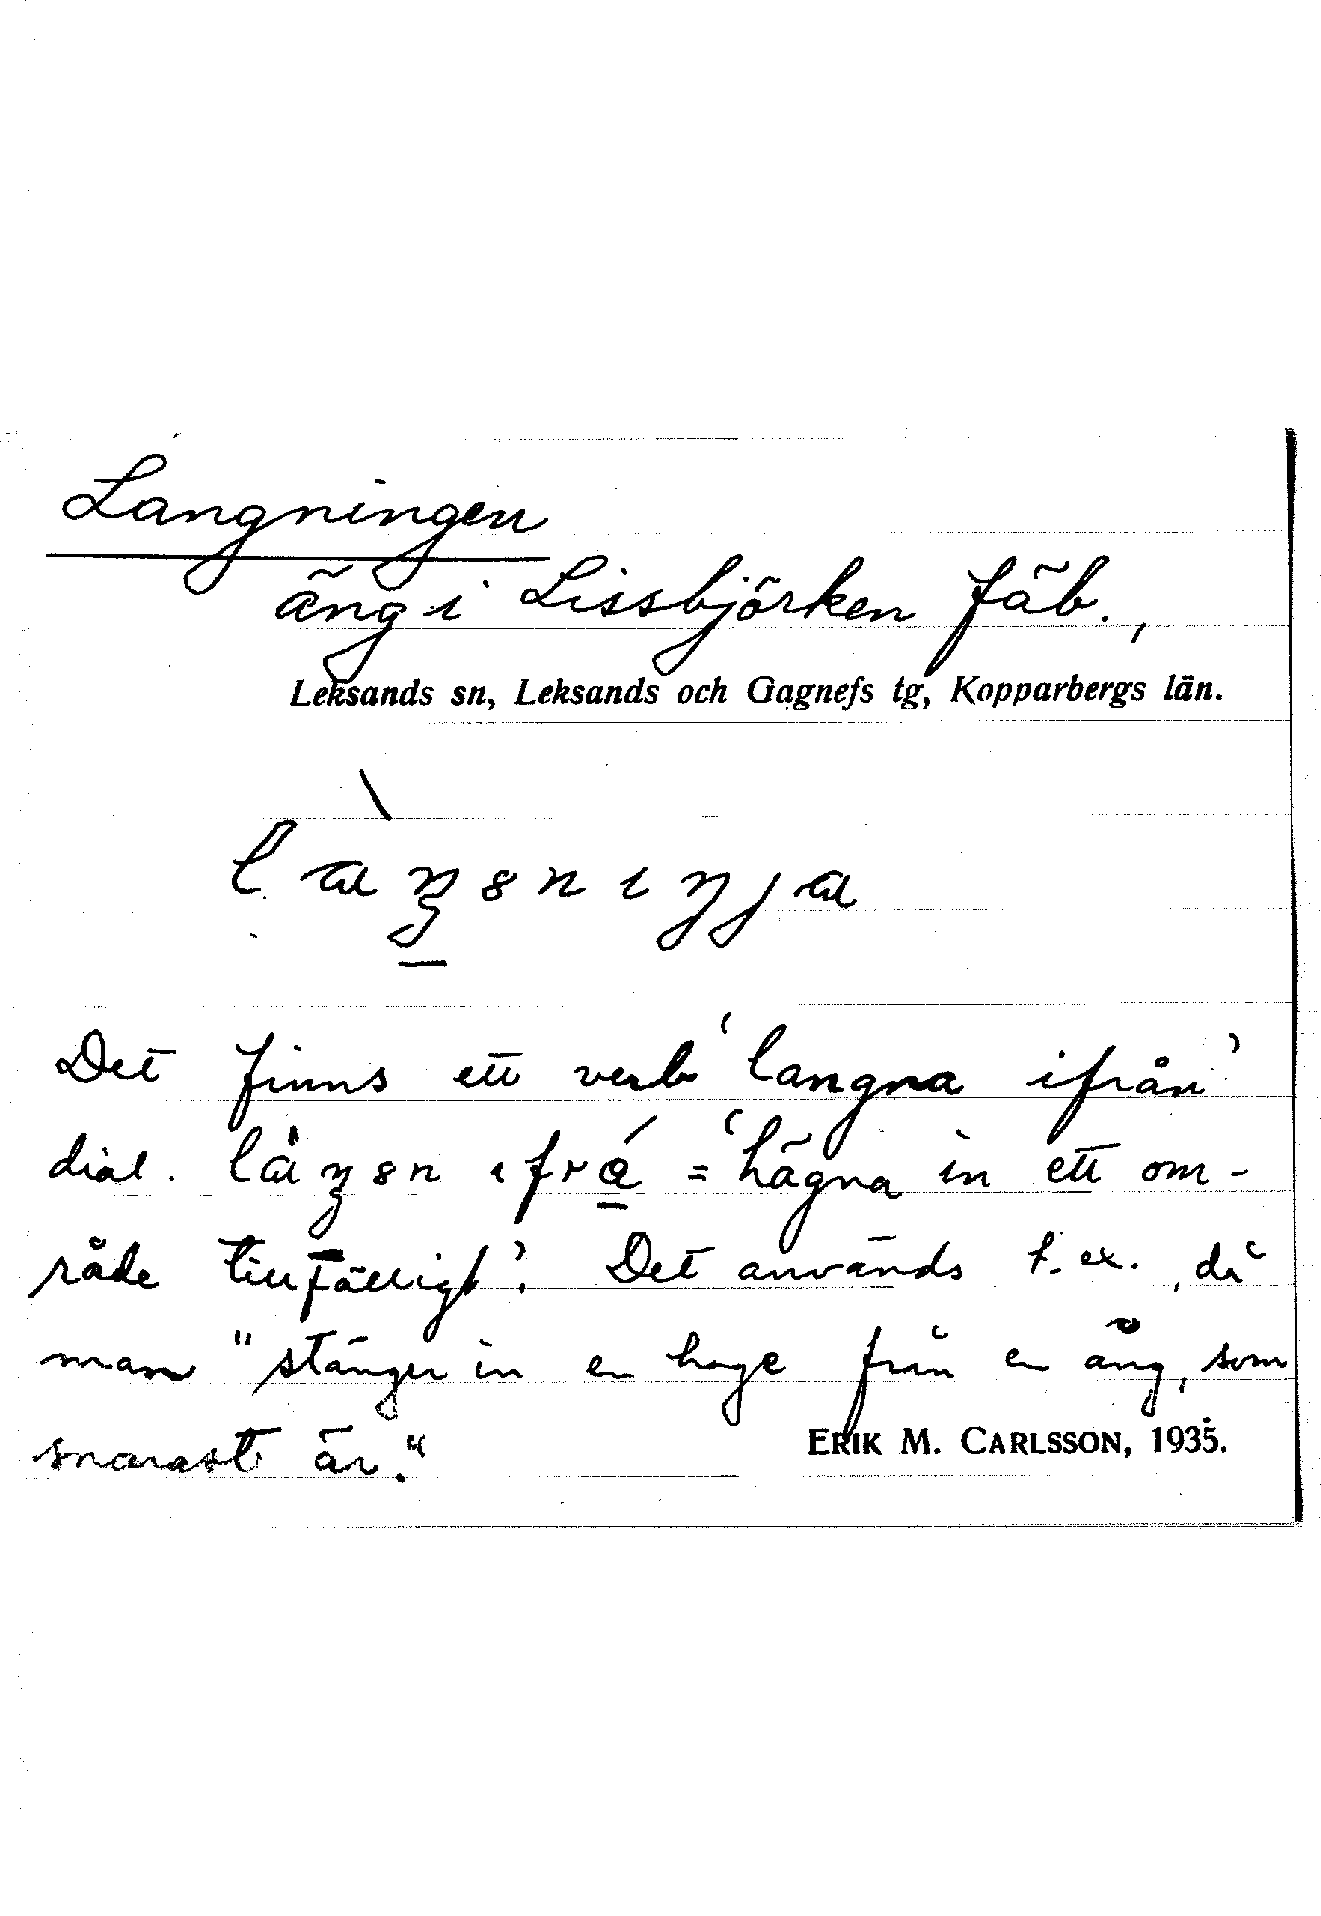 Langningen
äng i Lissbjörken fäb.,
Leksands sn, Leksands och Gagnefs tg, Kopparbergs län.
Det finns ett verb 'langna ifrån'
dial. = 'hägna in ett om-
råde tillfälligt'. Det används t. ex., då
man "stänger in en hage från en äng, som
snarast är."
ERIK M. CARLSSON, 1935.